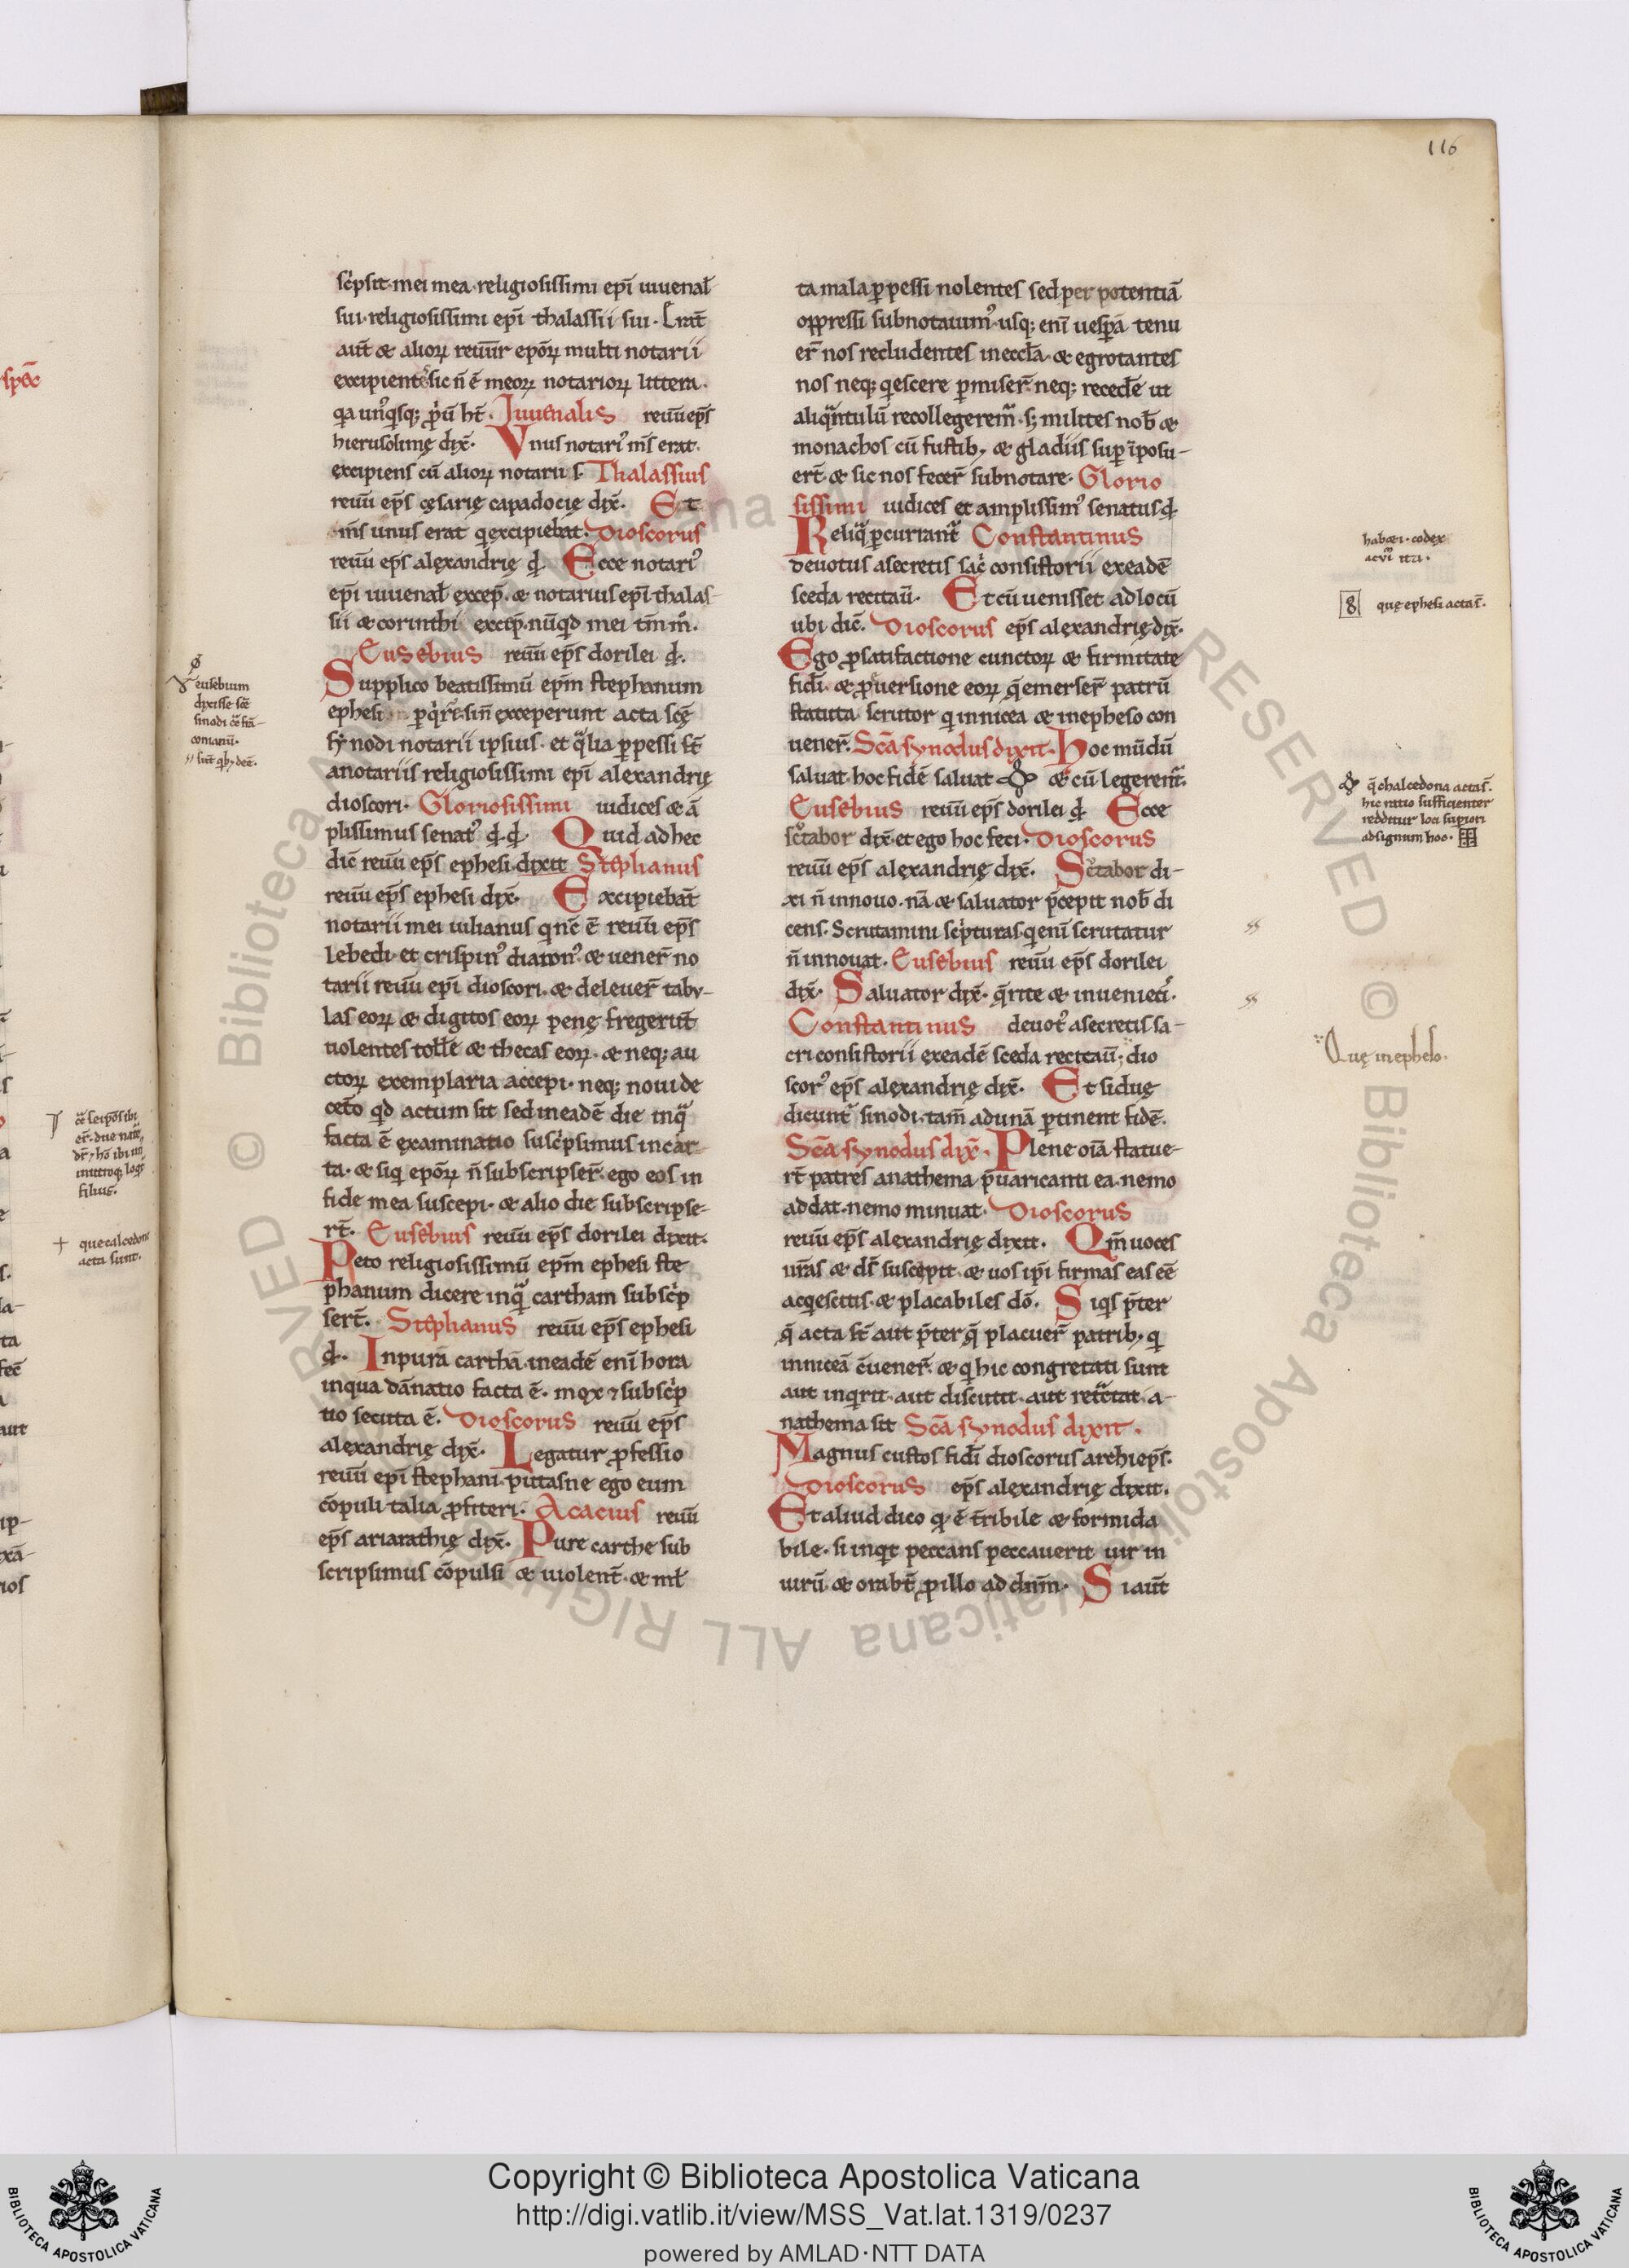 116
sc̄psit mei mea religiosissimi ep̄i iuuenaƚ
sui religiosissimi ep̄i thalassii sui. Erat̄
aut̄ & alioꝝ reuūr ep̄oꝝ multi notarii
excipientes sic n̄ ē meoꝝ notarioꝝ littera.
qa un᾽qsq; p̄u᷑ ht̄. Juuenalis reuū ep̄s
hierusolimę dix̄. Vnus notari᾽ m̄s erat
excipiens cū alioꝝ notariis. Thalassius
reuū ep̄s cęsarię capadocię dix̄. Et
m̄s unus erat q excipiebat. Dioscorus
reuū ep̄s alęxandrię đ. Ecce notari᾽
ep̄i iuuenaƚ excep̄. & notarius ep̄i thalas-
sii & corinthi excep̄. nūqd mei tm̄ m̊.
Eusebius reuū ep̄s dorilei đ.
Supplico beatissimū ep̄m stephanum
ephesi pqrere. sin̄ exceperunt acta scę̄
synodi notarii ipsius. et qͣlia ꝑpessi st̄
a notariis religiosissimi ep̄i alexandrię
dioscori. Gloriosissimi iudices & ā
plissimus senat᾽ đ.đ. Quid ad hec
dic̄ reuū ep̄s ephesi. dixit Stephanus
reuū ep̄s ephesi dix̄. Excipiebat̄
notarii mei iulianus q nc̄ ē reuū ep̄s
Lebedi. et crispin᾽ diacon᾽. & uener̄ no
tarii reuū ep̄i dioscori. & deleuer̄ taby-
las eoꝝ & digitos eoꝝ penę fregerūt
uolentes tolƚe & thecas eoꝝ. & neq; au
ctoꝝ exemplaria accepi. neq; noui de
ceto qd actum sit sed in eadē die inqͣ
facta ē examinatio susc̄psimus in car-
ta. & siq ep̄oꝝ n̄ subscripser̄. ego eos in
fide mea suscepi. & alio die subscripse-
rt̄. Eusebius reuū ep̄s dorilei dixit.
Peto religiosissimū ep̄m ephesi ste
phanum dicere inqͣ cartham subsc̄p
sert̄. Stephanus reuū ep̄s ephesi
đ. In purā carthā. in eadē eni hora
in qua dānatio facta ē. mox ⁊ subsc̄p
tio secuta ē. Dioscorus reuū ep̄s
alęxandrię dix̄. Legatur ꝓfessio
reuū ep̄i stephani. putasne ego eum
cōpuli talia ꝓfiteri. Acacius reuū
ep̄s ariarathię dix̄. Pure carthe sub
scripsimus cōpulsi & uiolent̄. & mƚ
ta mala ꝑpessi nolentes sed per potentiā
oppressi subnotauim᾽. usq; eni uesꝑā tenu
er̄ nos recludentes in eccƚa. & egrotantes
nos neq; qescere ꝑmiser̄. neq; recedēe ut
aliqͣntulū recollegerem̄. s; milites nob̄ &
monachos cū fustib; & gladiis suꝑiposu-
ert̄ & sic nos fecer̄ subnotare. Glorio
sissimi iudices et amplissim᾽ senatus đ.
Reliqͣ ꝑcurrant̄ Constantinus
deuotus a secretis sac̄ consistorii ex eadē
sceda recitau᷑. Et cū uenisset ad locū
ubi dic̄. Dioscorus ep̄s alexandrię dix̄.
Ego ꝓ satifactione cunctoꝝ & firmitate
fidi. & ꝓuersione eoꝝ q̄ emerser̄ patrū
statuta scrutor q in nicea & in epheso con
uener̄. Scā synodus dixit. Hoc mūdū
saluat. hoc fidē saluat & cū legerent̄.
Eusebius reuū ep̄s dorilei đ Ecce
sc̊tabor dix̄. et ego hoc feci. Dioscorus
reuū ep̄s alęxandrię dix̄. Sc̊tabor di-
xi n̄ innouo. nā & saluator p̄cepit nob̄ di
cens. Scrutamini sc̄pturas. q eni scrutatur
n̄ innouat. Eusebius reuū ep̄s dorilei
dix̄. Saluator dix̄. q̄rite & inuenieti᾽.
Constantinus deuot᾽ a secretis sa-
cri consistorii ex eadē sceda recitau᷑. dio
scor᾽ ep̄s alęxandrię dix̄. Et si duę
dicunt̄ sinodi. tam̄ ad unā ꝑtinent fidē.
Scā synodus dix̄. Plene oīa statue-
rt̄ patres anathema p̄uaricanti ea. nemo
addat. nemo minuat. Dioscorus
reuū ep̄s alęxandrię dixit. Qm̄ uoces
uras & ds̄ suscepit. & uos ip̄i firmas eas eē
acqescitis. & placabiles dō. Siqs p̄ter
q̄ acta st̄ aut p̄ter q̄ placuer̄ patrib; q
in niceā c̄uener̄. & q hic congretati sunt
aut inqrit. aut discutit. aut ret̄ctat. a-
nathema sit Scā synodus dixit.
Magnus custos fidi dioscorus archiep̄s.
Dioscorus ep̄s alęxandrię dixit.
Et aliud dico q ē t̄ribile & formida
bile. si inqt peccans peccauerit uir in
uirū. & orabt̄ ꝓ illo ad dn̄m. Si aut̄
eusebium
dixisse scē
sinodi
habetur. codex
quę ephesi acta s̄.
q̄ chalcedona acta s̄.
hic ratio sufficienter
redditur loci suꝑiori
ad signum hoc.
Quę in epheso.
que calcedone
acta sunt.
filius.
Copyright © Biblioteca Apostolica Vaticana
http://digi.vatlib.it/view/MSS_Vat.lat.1319/0237
powered by AMLAD·NTT DATA
BIBLIOTECA APOSTOLICA VATICANA
BIBLIOTECA APOSTOLICA VATICANA
© Biblioteca Apostolica Vaticana ALL RIGHTS RESERVED